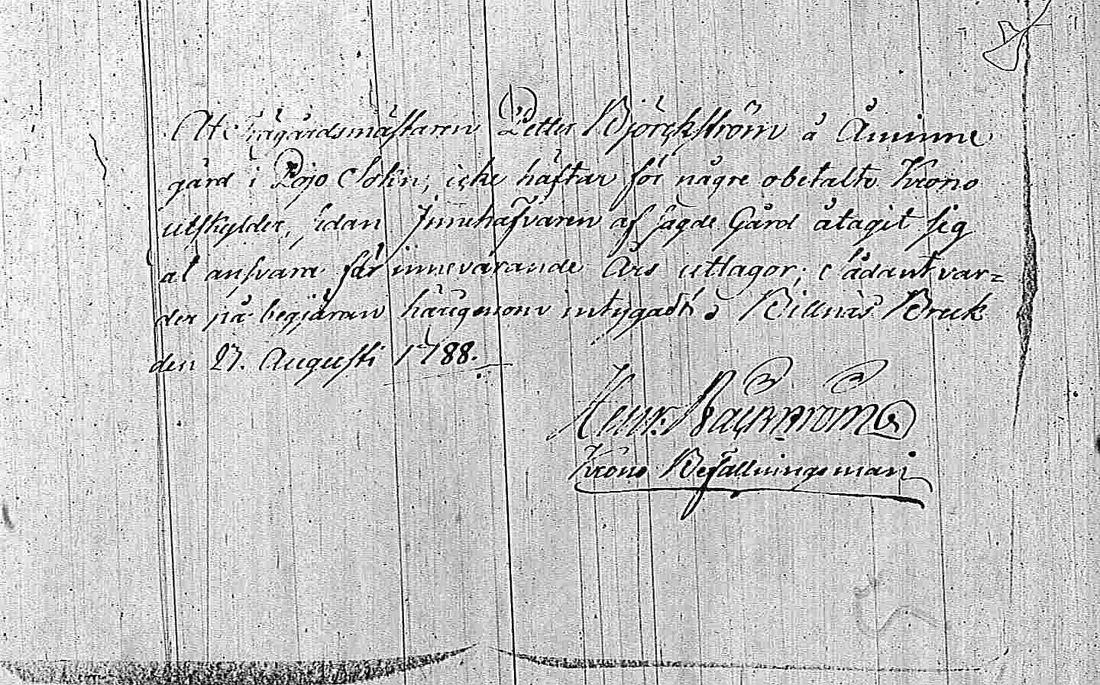 At Trägårdsmästaren Petter Björckström å Åminne
gård i Pojo Sokn, icke häftar för någre obetalte Krono
utskylder, sedan Innehafvaren af sagde Gård åtagit sig
at ansvara för innevarande Års utlagor; Sådant var=
der på begjäran härigenom intygadt å Billnäs Bruk
den 27. Augusti 1788.
Henr: Backström
Krono Befallningsman